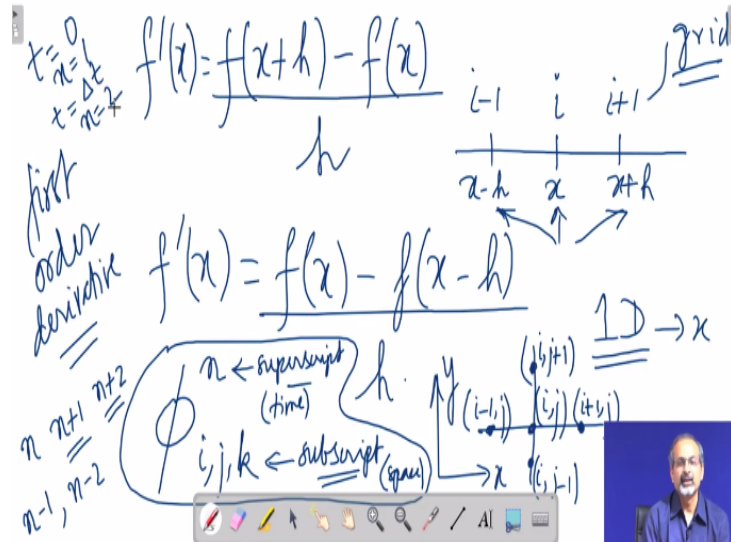 t = 0
n = 1
t = Δt
n = 2
f'(x) = f(x+h) - f(x)
h
grid
i-1 i i+1
x-h x x+h
first
order
derivative
f'(x) = f(x) - f(x-h)
h.
1D → x
n n+1 n+2
n-1, n-2
ϕ
n ← superscript
(time)
i,j,k ← subscript
(space)
y
x
(i,j+1)
(i-1,j) (i,j) (i+1,j)
(i,j-1)
A